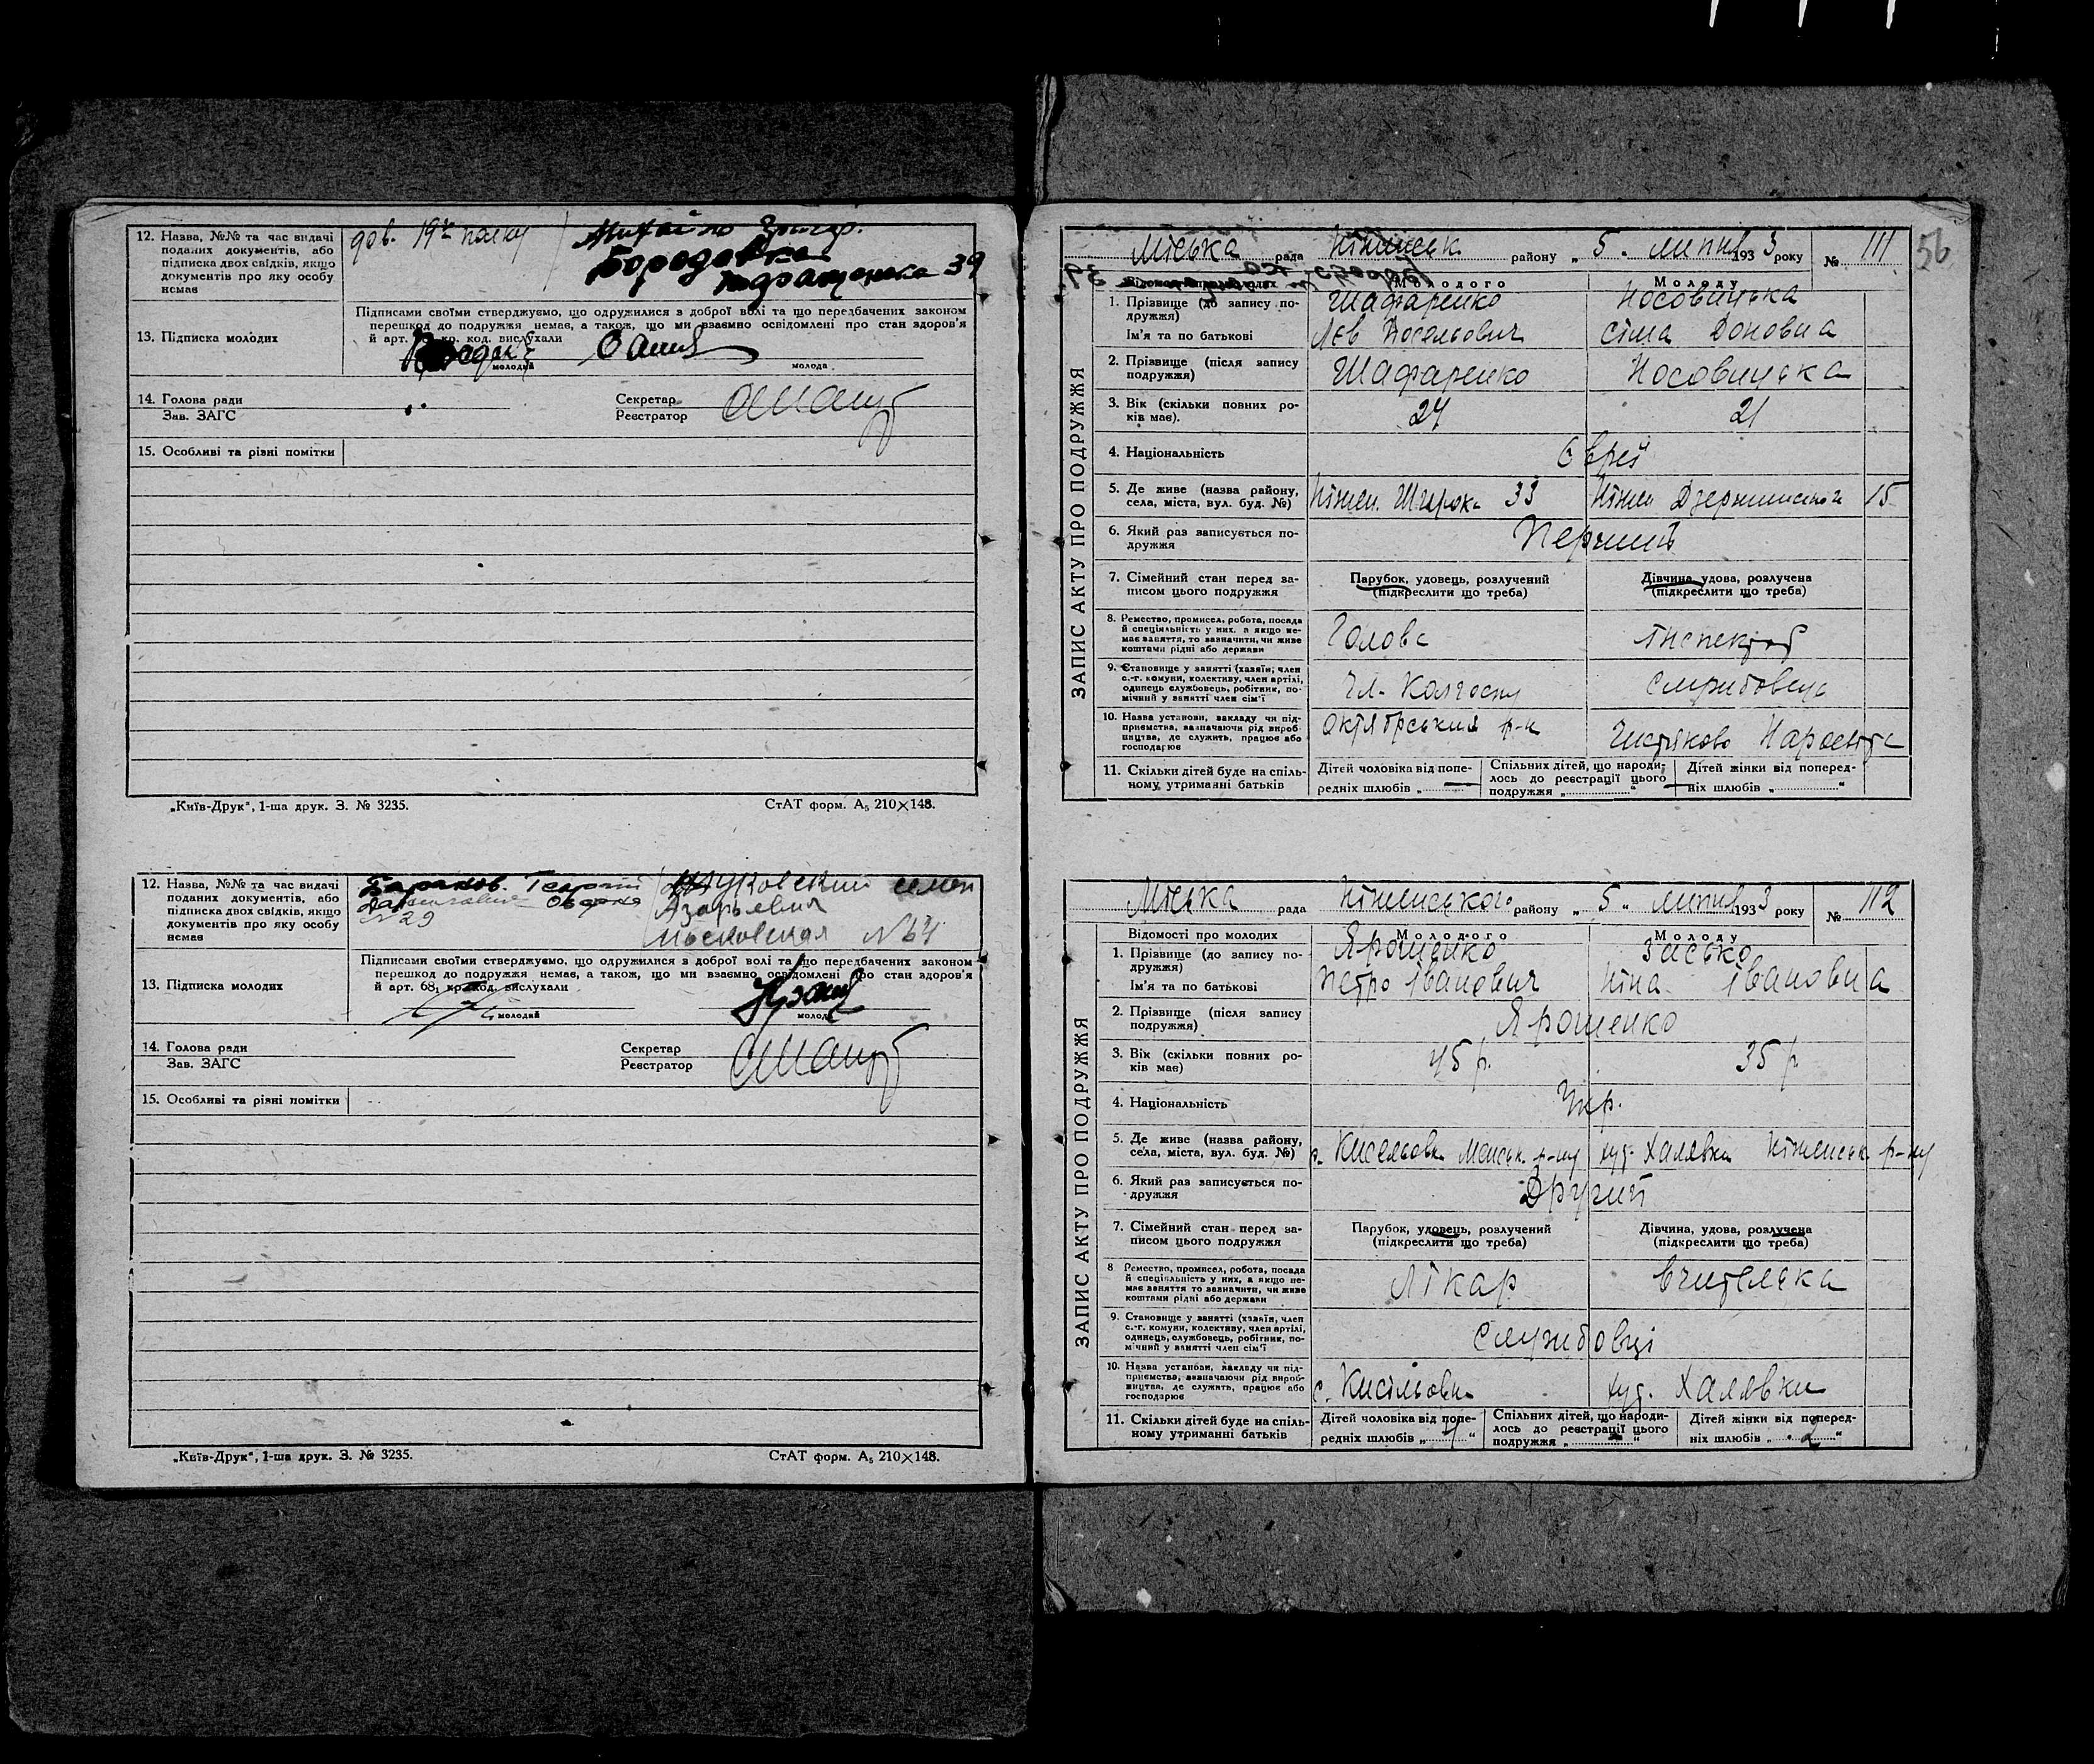 12. Назва, №№ та час видачі
поданих документів, або
підписка двох свідків, якщо
документів про яку особу
немає
дов. 19го полку
Михайло Григор.
Бородавка
39
13. Підписка молодих
Підписами своїми стверджуємо, що одружилися з доброї волі та що передбачених законом
перешкод до подружжя немає, а також, що ми взаємно освідомлені про стан здоров'я
й арт. кр. код. вислухали
молодий
молода
14. Голова ради
Зав. ЗАГС
Секретар
Реєстратор
15. Особливі та різні помітки
„Київ-Друк", 1-ша друк. З. № 3235.
СтАТ форм. А₅ 210×148.
12. Назва, №№ та час видачі
поданих документів, або
підписка двох свідків, якщо
документів про яку особу
немає
№ 29
семен
Азарьевич
Московская №64
13. Підписка молодих
Підписами своїми стверджуємо, що одружилися з доброї волі та що передбачених законом
перешкод до подружжя немає, а також, що ми взаємно освідомлені про стан здоров'я
й арт. 68, кр. код. вислухали
молодий
молода
14. Голова ради
Зав. ЗАГС
Секретар
Реєстратор
15. Особливі та різні помітки
„Київ-Друк", 1-ша друк. З. № 3235.
СтАТ форм. А₅ 210×148.
56
ЗАПИС АКТУ ПРО ПОДРУЖЖЯ
Міська рада Ніженськ району „ 5 " липня 1933 року № 111
Відомості про молодих
Молодого
Молоду
1. Прізвище (до запису по-
дружжя)
Ім'я та по батькові
Шафаренко
Носовицька
Лев
Сіма
2. Прізвище (після запису
подружжя)
Шафаренко
Носовицька
3. Вік (скільки повних ро-
ків має).
24
21
4. Національність
Єврей
5. Де живе (назва району,
села, міста, вул. буд. №)
Ніжен. 33
Ніжен Дзержинського 15
6. Який раз записується по-
дружжя
Перший
7. Сімейний стан перед за-
писом цього подружжя
Парубок, удовець, розлучений
(підкреслити що треба)
Дівчина, удова, розлучена
(підкреслити що треба)
8. Ремество, промисел, робота, посада
й спеціяльність у них, а якщо не-
має заняття, то зазначити, чи живе
коштами рідні або держави
Голова
Інспектор
9. Становище у занятті (хазяїн, член
с.-г. комуни, колективу, член артілі,
одинець службовець, робітник, по-
мічний у занятті член сім'ї
Чл. Колгоспу
Службовець
10. Назва установи, закладу чи під-
приємства, зазначаючи рід вироб-
ництва, де служить, працює або
господарює
Октябрський р-н
Чистяково
11. Скільки дітей буде на спіль-
ному утриманні батьків
Дітей чоловіка від попе-
редніх шлюбів „ — "
Спільних дітей, що народи-
лось до реєстрації цього
подружжя „ — "
Дітей жінки від поперед-
ніх шлюбів „ "
ЗАПИС АКТУ ПРО ПОДРУЖЖЯ
Міська рада Ніженського району „ 5 " липня 1933 року № 112
Відомості про молодих
Молодого
Молоду
1. Прізвище (до запису по-
дружжя)
Ім'я та по батькові
Ярошенко
Зисько
Петро Іванович
Ніна Івановна
2. Прізвище (після запису
подружжя)
Ярошенко
3. Вік (скільки повних ро-
ків має)
45 р.
35 р
4. Національність
Укр.
5. Де живе (назва району,
села, міста, вул. буд. №)
с. Кисельовка Менськ. р-ну
хут. Халявки Ніженськ р-ну
6. Який раз записується по-
дружжя
Другий
7. Сімейний стан перед за-
писом цього подружжя
Парубок, удовець, розлучений
(підкреслити що треба)
Дівчина, удова, розлучена
(підкреслити що треба)
8 Ремество, промисел, робота, посада
й спеціяльність у них, а якщо не-
має заняття то зазначити, чи живе
коштами рідні або держави
Лікар
Вчителька
9. Становище у занятті (хазяїн, член
с.-г. комуни, колективу, член артілі,
одинець, службовець, робітник, по-
мічний у занятті член сім'ї
Службовці
10. Назва установи, закладу чи під-
приємства, зазначаючи рід вироб-
ництва, де служить, працює або
господарює
с. Кисільовка
хут. Халявки
11. Скільки дітей буде на спіль-
ному утриманні батьків
Дітей чоловіка від попе-
редніх шлюбів „ 4 "
Спільних дітей, що народи-
лось до реєстрації цього
подружжя „ - "
Дітей жінки від поперед-
ніх шлюбів „ 2 "